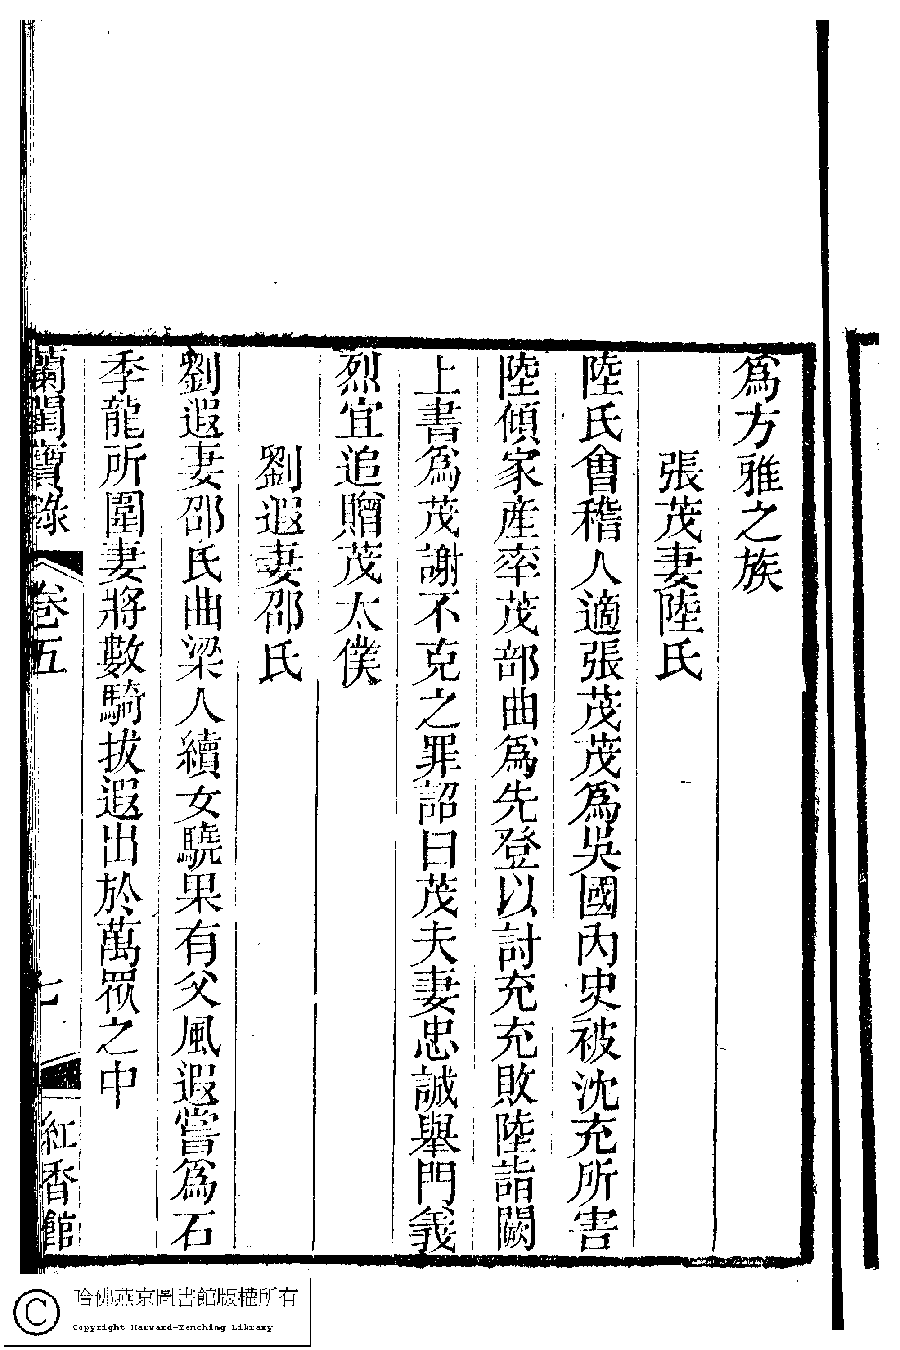 爲方雅之族
張茂妻陸氏
陸氏會稽人適張茂茂爲吳國內史被沈充所害
陸傾家産率茂部曲爲先登以討充充敗陸詣闕
上書爲茂謝不克之罪詔曰茂夫妻忠誠舉門義
烈宜追贈茂太僕
劉遐妻邵氏
劉遐妻邵氏曲梁人續女驍果有父風遐嘗爲石
季龍所圍妻將數騎拔遐出於萬眾之中
蘭閨寶錄
卷五
七
紅香館
哈佛燕京圖書館版權所有
Copyright Harvard-Yenching Library